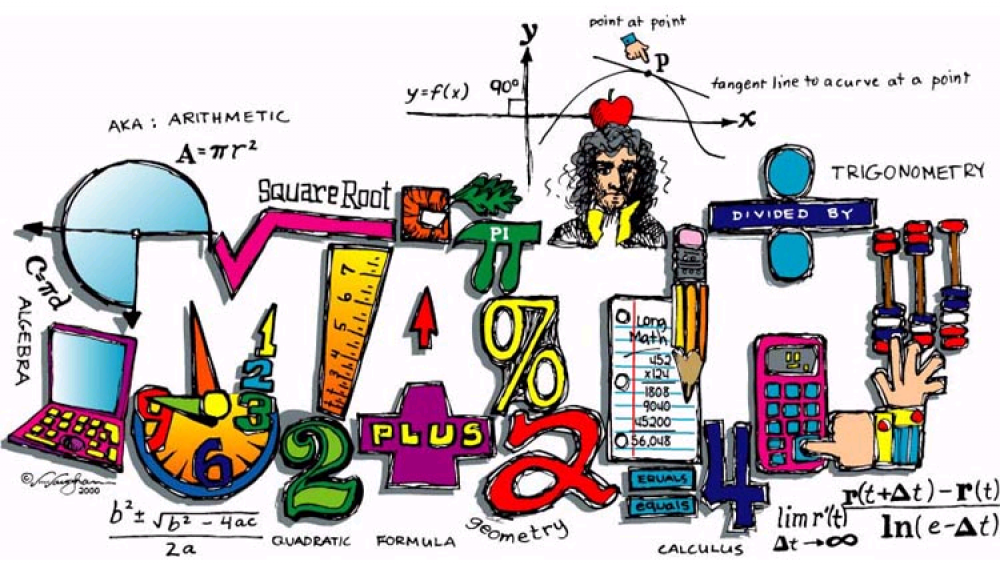 point at point
y
p
y=f(x)
90°
tangent line to a curve at a point
x
AKA: ARITHMETIC
A=πr²
TRIGONOMETRY
Square Root
PI
DIVIDED BY
C=πd
ALGEBRA
7
6
5
4
3
2
1
%
Long
Math
452
x124
1808
9040
45200
56,048
1
2
3
6
9
2
PLUS
2
EQUALS
equals
4
© Vaughan
2000
b² ± √b² - 4ac
2a
QUADRATIC
FORMULA
geometry
CALCULUS
lim r'(t)
Δt→∞
r(t+Δt)-r(t)
ln(e-Δt)